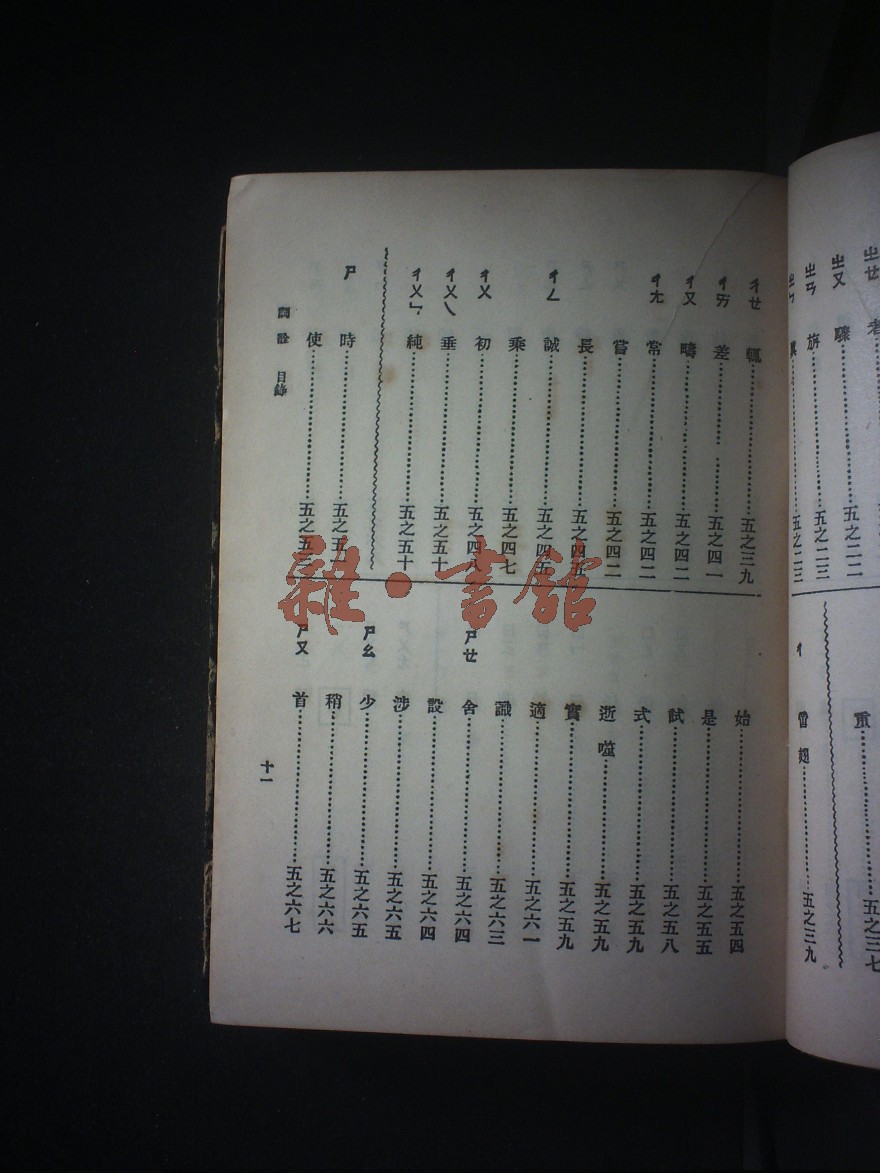 ㄓㄜ 者
ㄓㄡ 驟……五之二二
ㄓㄢ 旃……五之二三
五之二三
重……五之三七
ㄔ 啻 翅……五之三九
ㄔㄜ 輒……五之三九
ㄔㄞ 差……五之四一
ㄔㄡ 疇……五之四二
ㄔㄤ 常……五之四二
嘗……五之四二
長……五之四五
ㄔㄥ 誠……五之四五
乘……五之四七
ㄔㄨ 初……五之四八
ㄔㄨㄟ 垂……五之五十
ㄔㄨㄣ 純……五之五十
ㄕ 時……五之五一
使……五之五三
始……五之五四
是……五之五五
試……五之五八
式……五之五九
逝 噬……五之五九
實……五之五九
適……五之六一
識……五之六三
ㄕㄜ 舍……五之六四
設……五之六四
涉……五之六五
ㄕㄠ 少……五之六五
稍……五之六六
ㄕㄡ 首……五之六七
目錄
十一
雜·書館